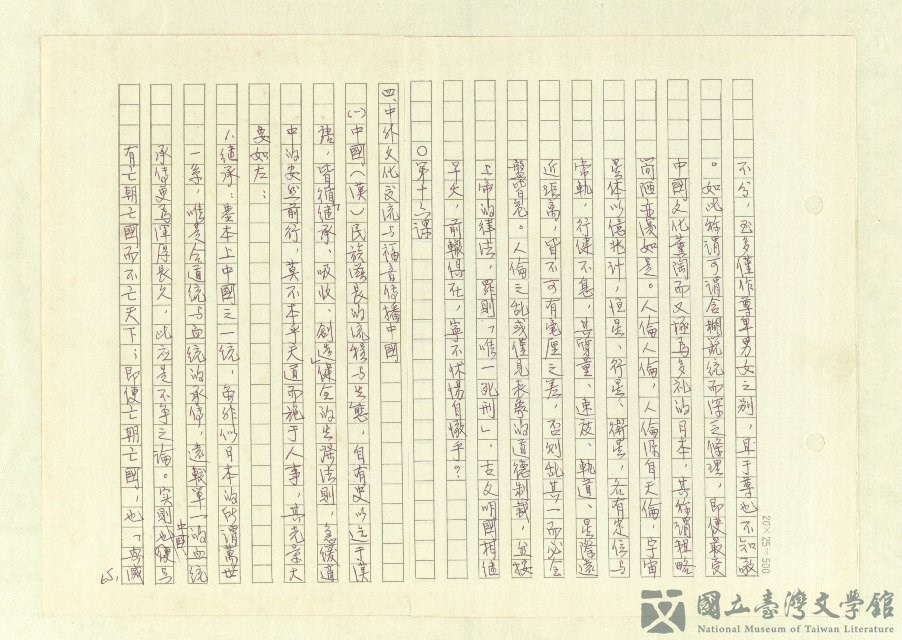 不分，至多僅作尊卑男女之別，且于尊也不知敬
。如此稱謂可謂含糊籠統而深乏條理，即使最受
中國文化薰陶而又極為多禮的日本，其稱謂粗略
簡陋亦復如是。人倫人倫，人倫源自天倫，宇宙
星体以億兆計，恒星、行星、衛星，各有定位与
常軌，行健不息，其質量、速度、軌道、星際遠
近距离，皆不可有毫厘之差，否则乱其一而必全
盤皆亂。人倫之乱或僅見表象的道德制裁，並按
上帝的律法，罪則「唯一死刑」，古文明國相繼
早夭，前轍得在，寧不怵惕自儆乎？
○第十六課
四、中外文化交流与福音传播中國
(一)中國（漢）民族滋長的流程与生態，自有史以迄于漢
語，皆循「繼承、吸收、創造」健全的生發法則，急緩適
中的安然前行，莫不本乎天道而施于人事，其光景大
要如左：
1.繼承：基本上中國之一統，雖非似日本的所謂萬世
一系，唯是合道統与血統的承傳，遠較單一的血統
承傳更為深厚長久，此应是不争之論。实则中國也便与
有亡朝亡國而不亡天下；即便亡朝亡國，也「興滅
65.
20×25=500
國立臺灣文學館
National Museum of Taiwan Literature